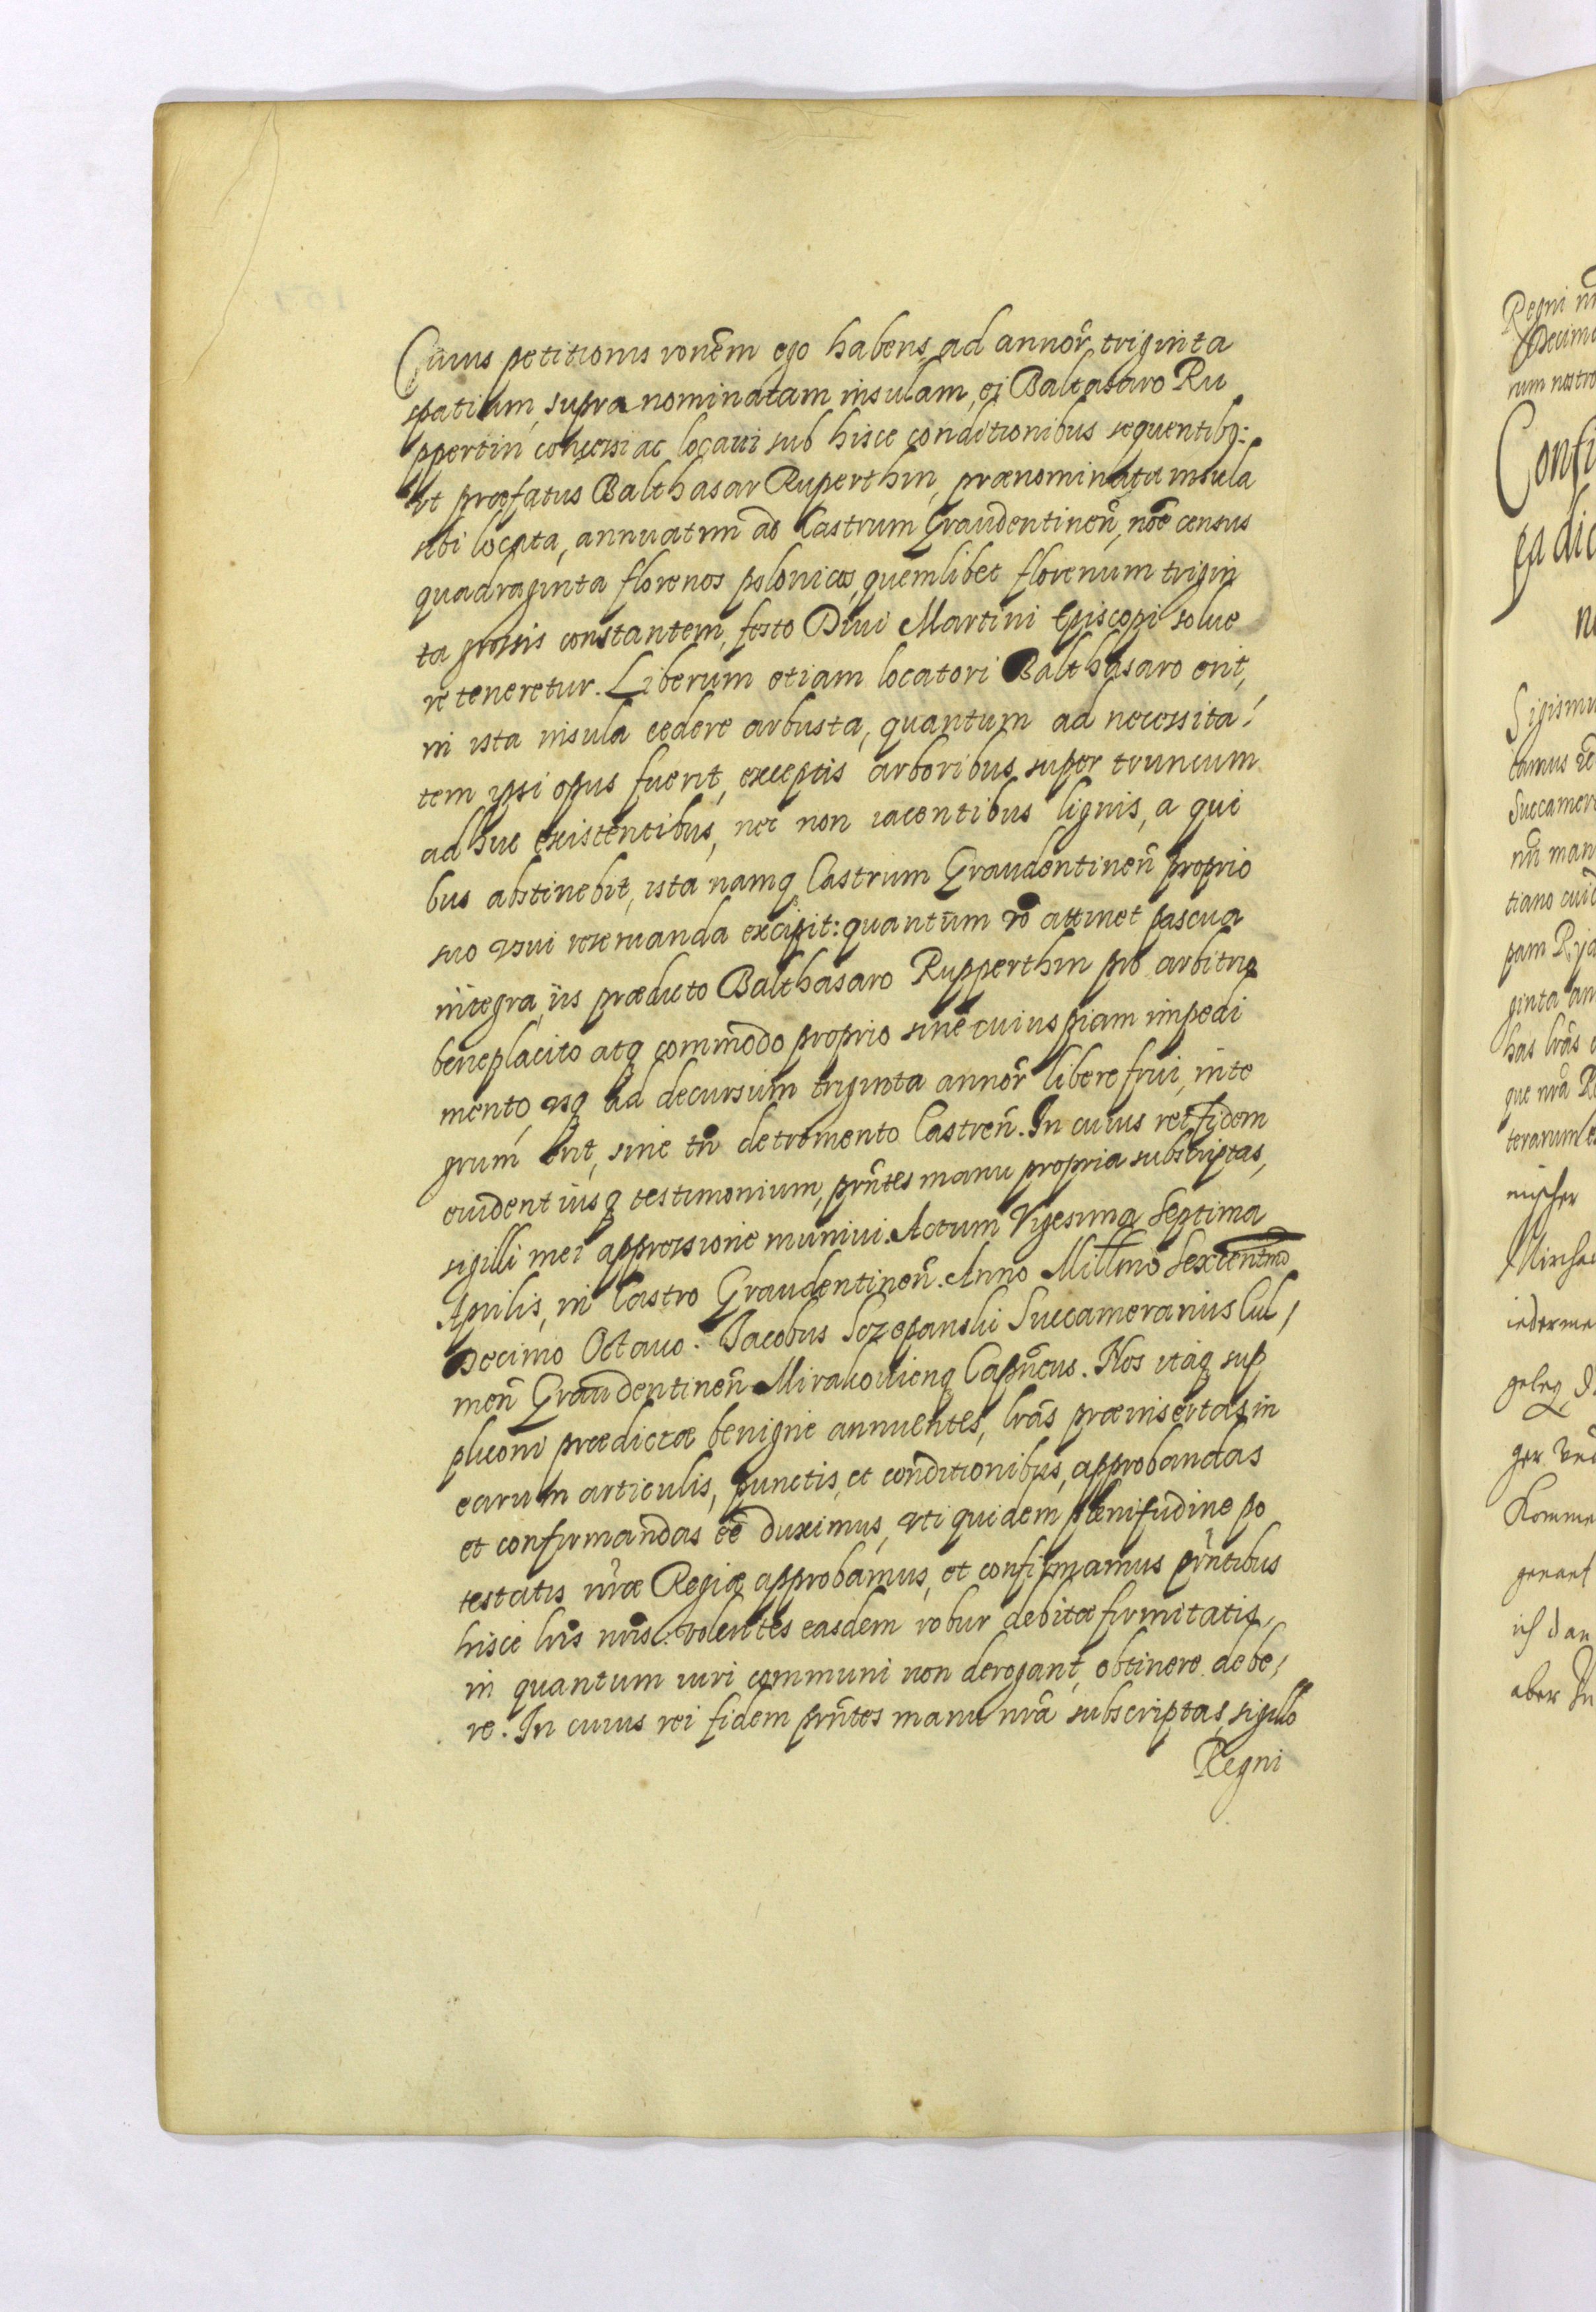 Cuius petitionis ronem ego habens, ad annor triginta
spatium, supra nominatam insulam, ei Baltasaro Ru
ppertin concessi ac locaui sub hisce conditionibus sequentibq:
vt præfatus Balthasar Ruperthin, prænominata insula
sibi locata, annuatim ad Castrum Graudentinen, noe census
quadraginta florenos polonicos, quemlibet florenum trigin
ta grossis constantem, festo Diui Martini Episcopi solue
re teneretur. Liberum etiam locatori Balthasaro erit,
in ista insula cedere arbusta, quantum ad necessita:
tem ipsi opus fuerit, exceptis arboribus super truncum
ad huc existentibus, nec non iacentibus lignis, a qui
bus abstinebit, ista namq Castrum Graudentinen proprio
suo vsui reseruanda excipit: quantum vo attinet pascua
integra, iis prædicto Balthasaro Rupperthin pro arbitrio
beneplacito atq commodo proprio sine cuius piam impedi
mento, vsq ad decursum triginta annor libere frui, inte
grum erit, sine tn detremento Castren. In cuius rei fidem
euidentiusq testimonium, pntes manu propria subscriptas,
sigilli mei appressione muniui. Actum Vigesima Septima
Aprilis, in Castro Graudentinen. Anno Millmo Sexcentmo
Decimo Octauo. Jacobus Sczepanski Succamerarius Cul,
men Graudentinen Mirakouienq Capneus. Nos itaq sup
pliconi prædictæ benigne annuentes, lras præinsertas in
earum articulis, punctis, et conditionibus, approbandas
et confirmandas ee duximus, vti quidem plenitudine po
testatis nræ Regiæ approbamus, et confirmamus pntibus
hisce lris nris: volentes easdem robur debitæ firmitatis,
in quantum iuri communi non derogant, obtinere debe,
re. In cuius rei fidem pntes manu nra subscriptas, sigillo
Regni
Regni
Decimo
rum nostro
Confi
ea dic
Sigismu
camus
Succamer
nri man
tiano
pam
ginta an
has lras
que nra Re
terarum
ieder me
geleg
Komme
genant
ich dan
aber